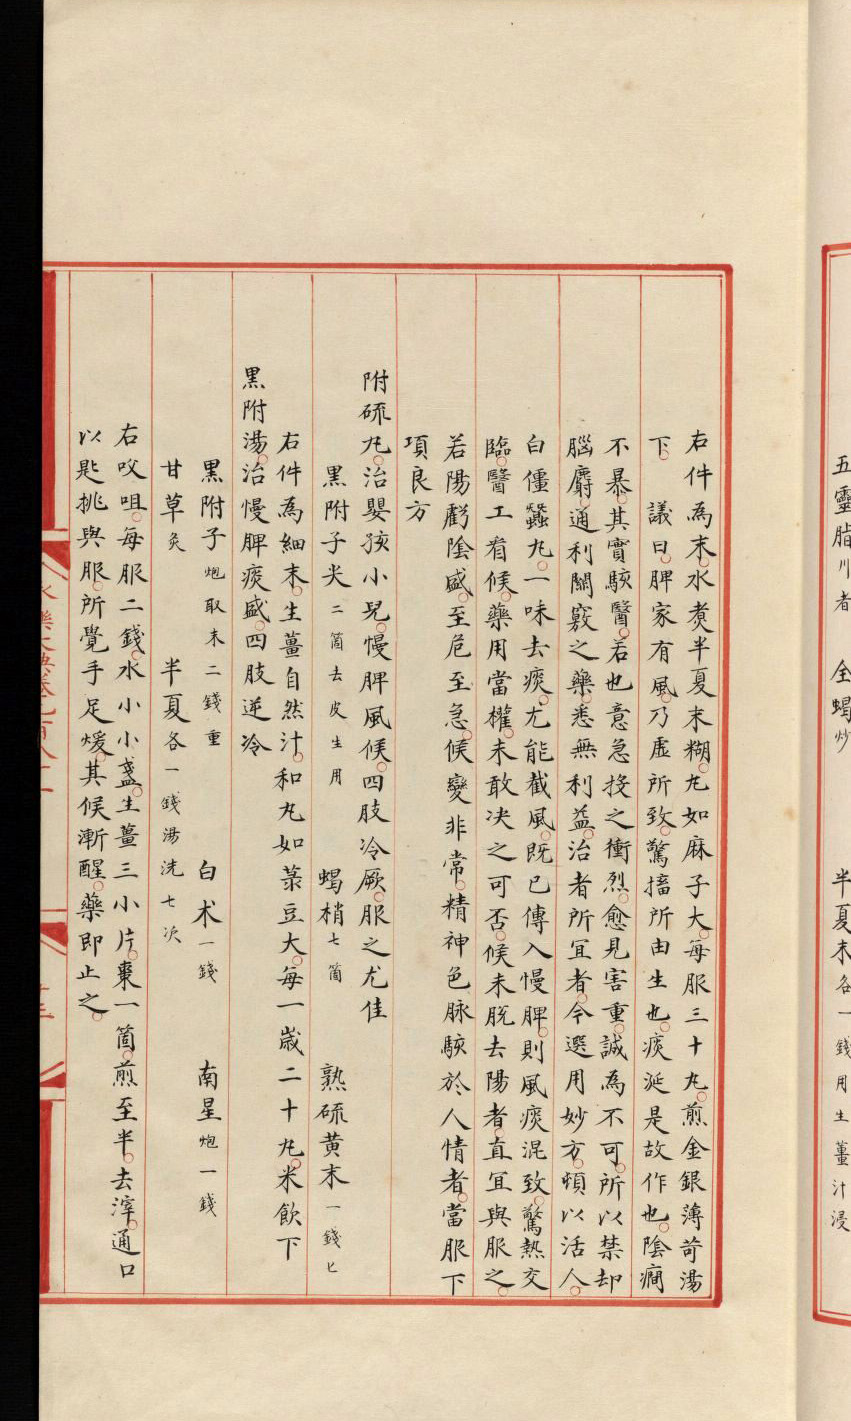 五靈脂川者　全蝎炒　半夏末各一錢用生薑汁浸
右件為末。水煮半夏末糊。丸如麻子大。每服三十丸。煎金銀薄荷湯
下。　議曰。脾家有風。乃虛所致。驚搐所由生也。痰涎是故作也。陰癎
不暴。其實駭醫。若也意急投之衝烈。愈見害重。誠為不可。所以禁却
腦麝。通利關竅之藥。悉無利益。治者所宜者。今選用妙方。頓以活人。
白僵蠶丸。一味去痰。尤能截風。既已傳入慢脾。則風痰混致。驚熱交
臨。醫工看候。藥用當權。未敢决之可否。候未脱去陽者。直宜與服之。
若陽虧陰盛。至危至急。候變非常。精神色脉。駭於人情者。當服下
項良方
附硫丸。治嬰孩小兒。慢脾風候。四肢冷厥。服之尤佳
黑附子尖二箇去皮生用　蝎梢七箇　熟硫黄末一錢匕
右件為細末。生薑自然汁。和丸如菉豆大。每一歲二十丸。米飲下
黑附湯。治慢脾痰盛。四肢逆冷
黑附子炮取末二錢重　白术一錢　南星炮一錢
甘草炙　半夏各一錢湯洗七次
右㕮咀。每服二錢。水小小盞。生薑三小片。棗一箇。煎至半。去滓。通口
以匙挑與服。所覺手足煖。其候漸醒。藥即止之。